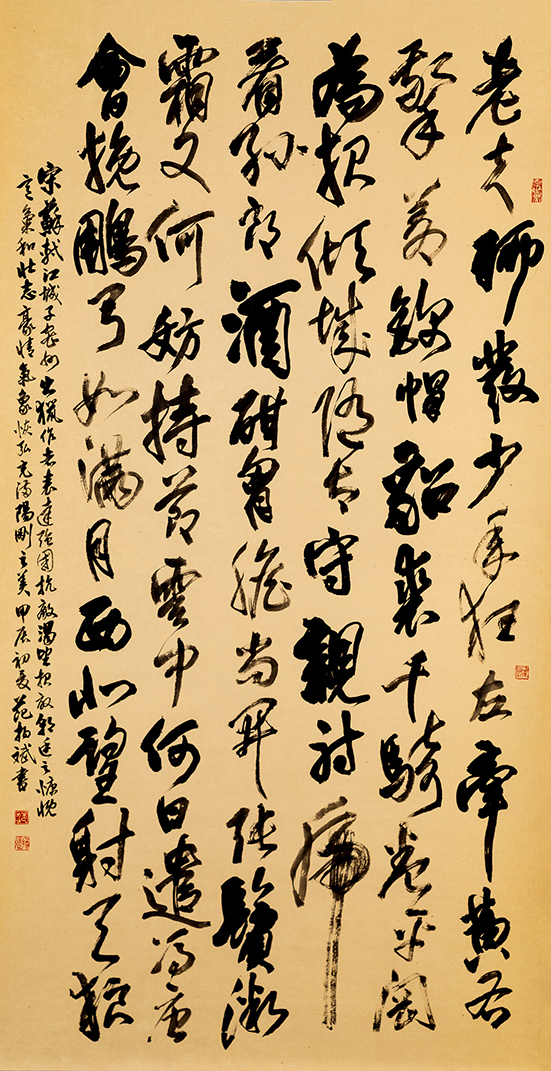 老夫聊發少年狂左牽黄右
擎蒼錦帽貂裘千騎卷平岡
為報傾城隨太守親射虎
看孫郎酒酣胷膽尚開張鬢微
霜又何妨持節雲中何日遣馮唐
會挽鵰弓如滿月西北望射天狼
宋蘇軾江城子密州出獵作者表達強國抗敵渴望報效朝廷之慷慨
意氣和壯志豪情氣象恢弘充滿陽剛之美甲辰初夏范揚斌書